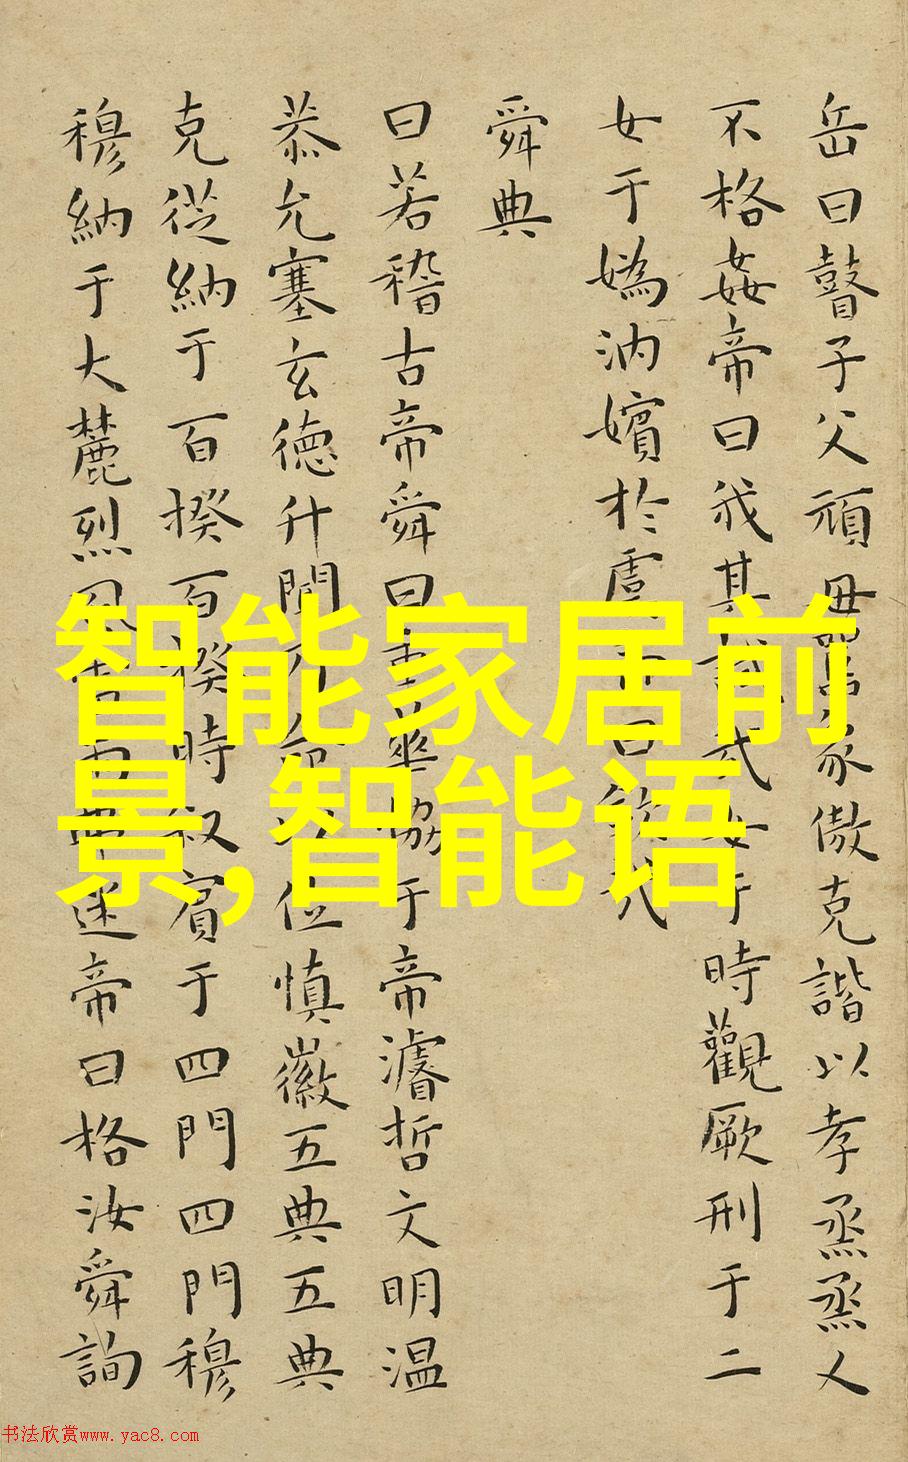 岳曰瞽子父頑母嚚象傲克諧以孝烝烝乂
不格姦帝曰我其試哉女于時觀厥刑于二
女于媯汭嬪於虞帝曰欽哉
舜典
曰若稽古帝舜曰重華協于帝濬哲文明温
恭允塞玄德升聞乃命以位慎徽五典五典
克從納于百揆百揆時叙賓于四門四門穆
穆納于大麓烈風雷雨弗迷帝曰格汝舜詢
智能家居前
景,智能语
书法欣赏www.yac8.com